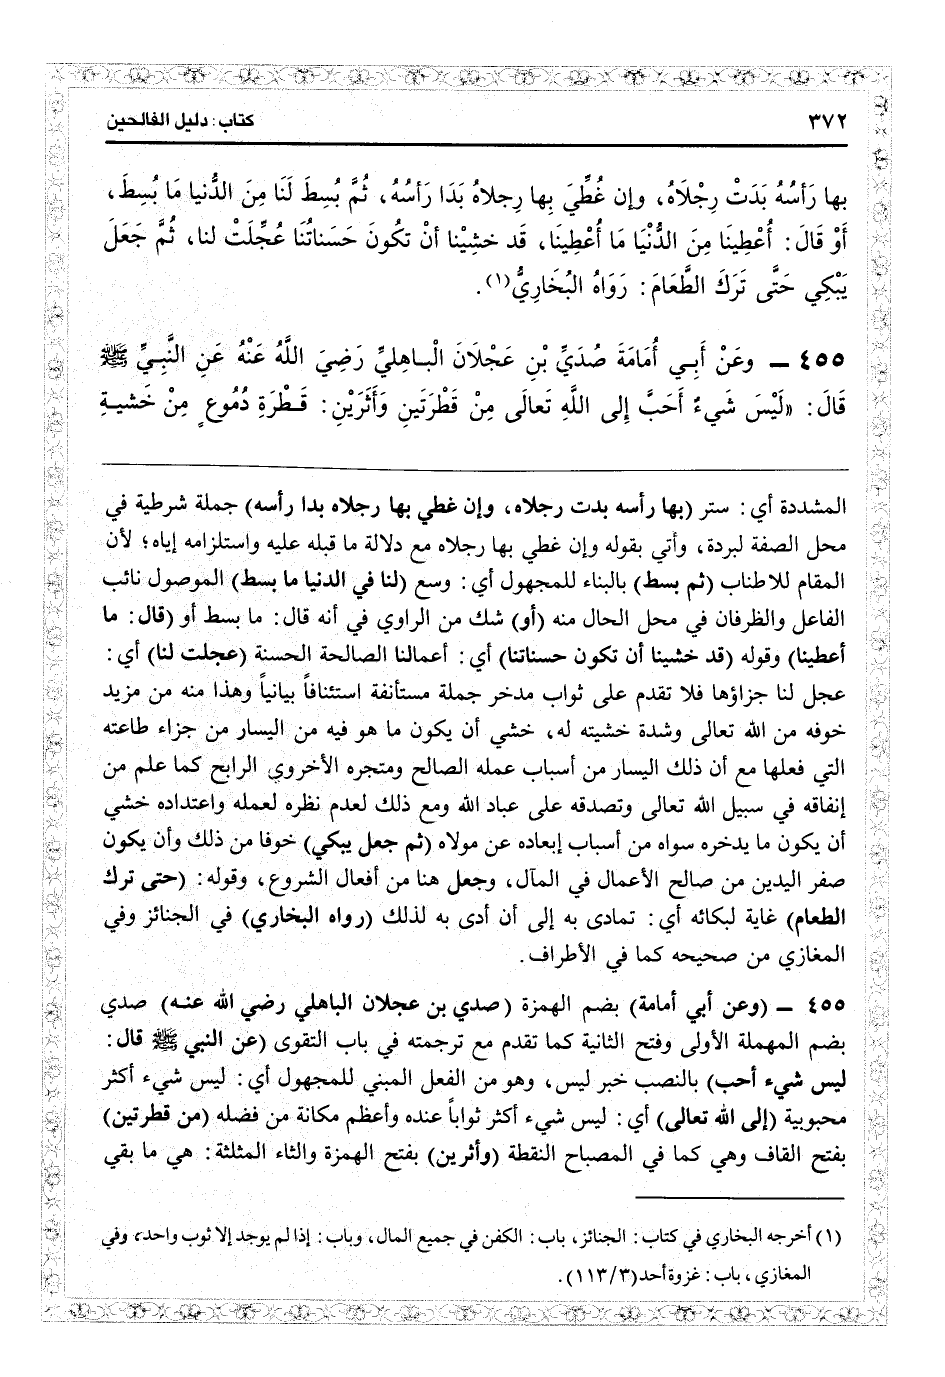 ٣٧٢
كتاب: دليل الفالحين
بها رَأسُهُ بَدَتْ رِجْلَاهُ، وإن غُطِّيَ بِها رِجلاهُ بَدَا رَأسُهُ، ثُمَّ بُسِطَ لَنَا مِنَ الدُّنيا مَا بُسِطَ،
أَوْ قَالَ: أُعْطِينَا مِنَ الدُّنْيَا مَا أُعْطِينَا، قَد خشِيْنا أنْ تكُونَ حَسَناتُنَا عُجِّلَتْ لنا، ثُمَّ جَعَلَ
يَبْكِي حَتَّى تَرَكَ الطَّعَامَ: رَوَاهُ البُخَارِيُّ(١).
٤٥٥ ـ وعَنْ أَبِي أُمَامَةَ صُدَيِّ بْنِ عَجْلَانَ الْباهليِّ رَضِيَ اللَّهُ عَنْهُ عَنِ النَّبِيِّ ﷺ
قَالَ: «لَيْسَ شَيءٌ أَحَبَّ إِلى اللَّهِ تَعالَى مِنْ قَطْرَتَينِ وَأَثَرَيْنِ: قَطْرَةِ دُمُوعٍ مِنْ خَشيةِ
المشددة أي: ستر (بها رأسه بدت رجلاه، وإن غطي بها رجلاه بدا رأسه) جملة شرطية في
محل الصفة لبردة، وأتي بقوله وإن غطي بها رجلاه مع دلالة ما قبله عليه واستلزامه إياه؛ لأن
المقام للاطناب (ثم بسط) بالبناء للمجهول أي: وسع (لنا في الدنيا ما بسط) الموصول نائب
الفاعل والظرفان في محل الحال منه (أو) شك من الراوي في أنه قال: ما بسط أو (قال: ما
أعطينا) وقوله (قد خشينا أن تكون حسناتنا) أي: أعمالنا الصالحة الحسنة (عجلت لنا) أي:
عجل لنا جزاؤها فلا تقدم على ثواب مدخر جملة مستأنفة استئنافاً بيانياً وهذا منه من مزيد
خوفه من الله تعالى وشدة خشيته له، خشي أن يكون ما هو فيه من اليسار من جزاء طاعته
التي فعلها مع أن ذلك اليسار من أسباب عمله الصالح ومتجره الأخروي الرابح كما علم من
إنفاقه في سبيل الله تعالى وتصدقه على عباد الله ومع ذلك لعدم نظره لعمله واعتداده خشي
أن يكون ما يدخره سواه من أسباب إبعاده عن مولاه (ثم جعل يبكي) خوفا من ذلك وأن يكون
صفر اليدين من صالح الأعمال في المآل، وجعل هنا من أفعال الشروع، وقوله: (حتى ترك
الطعام) غاية لبكائه أي: تمادى به إلى أن أدى به لذلك (رواه البخاري) في الجنائز وفي
المغازي من صحيحه كما في الأطراف.
٤٥٥ ـ (وعن أبي أمامة) بضم الهمزة (صدي بن عجلان الباهلي رضي الله عنه) صدي
بضم المهملة الأولى وفتح الثانية كما تقدم مع ترجمته في باب التقوى (عن النبي ﷺ قال:
ليس شيء أحب) بالنصب خبر ليس، وهو من الفعل المبني للمجهول أي: ليس شيء أكثر
محبوبية (إلى الله تعالى) أي: ليس شيء أكثر ثواباً عنده وأعظم مكانة من فضله (من قطرتين)
بفتح القاف وهي كما في المصباح النقطة (وأثرين) بفتح الهمزة والثاء المثلثة: هي ما بقي
(١) أخرجه البخاري في كتاب: الجنائز، باب: الكفن في جميع المال، وباب: إذا لم يوجد إلا ثوب واحد، وفي
المغازي، باب: غزوة أحد (١١٣/٣).